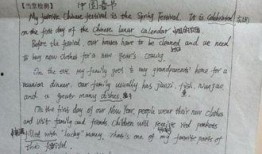 My favorite Chinese festival is the Spring Festival. It is celebrated
on the first day of the Chinese lunar calendar
Before the festival, our houses have to be cleaned and we need
to buy new clothes for a new year's coming.
On the eve my family goes to my grandparents' home for a
reunion dinner. Our family usually has jiaozi, fish,
and a greater many dishes.
On the first day of our New Year, people wear their new clothes
and visit family and friends. Children will receive red
filled with "lucky" money, that's one of my favorite parts of
this festival.